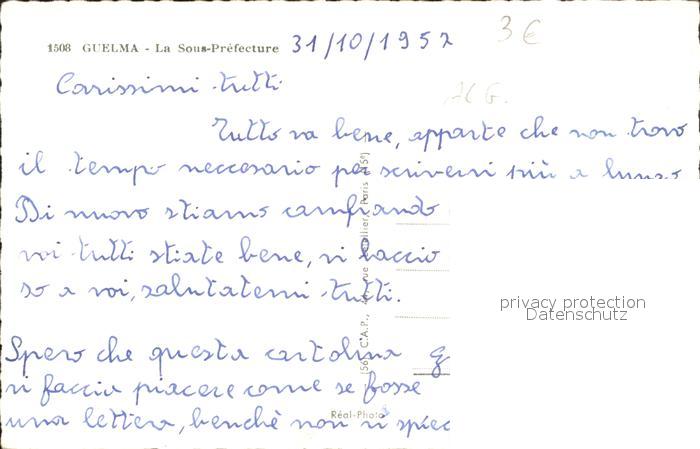 1508 GUELMA - La Sous-Préfecture 31/10/1957
3 €
Carissimi tutti
Tutto va bene, apparte che non trovo
il tempo neccesario per scrivervi più a lungo
Di nuovo stiamo cambiando
voi tutti stiate bene, vi baccio
so a voi, salutatemi tutti.
Spero che questa cartolina
vi faccia piacere come se fosse
una lettera, benchè non vi spiec
Réal-Photo
privacy protection
Datenschutz